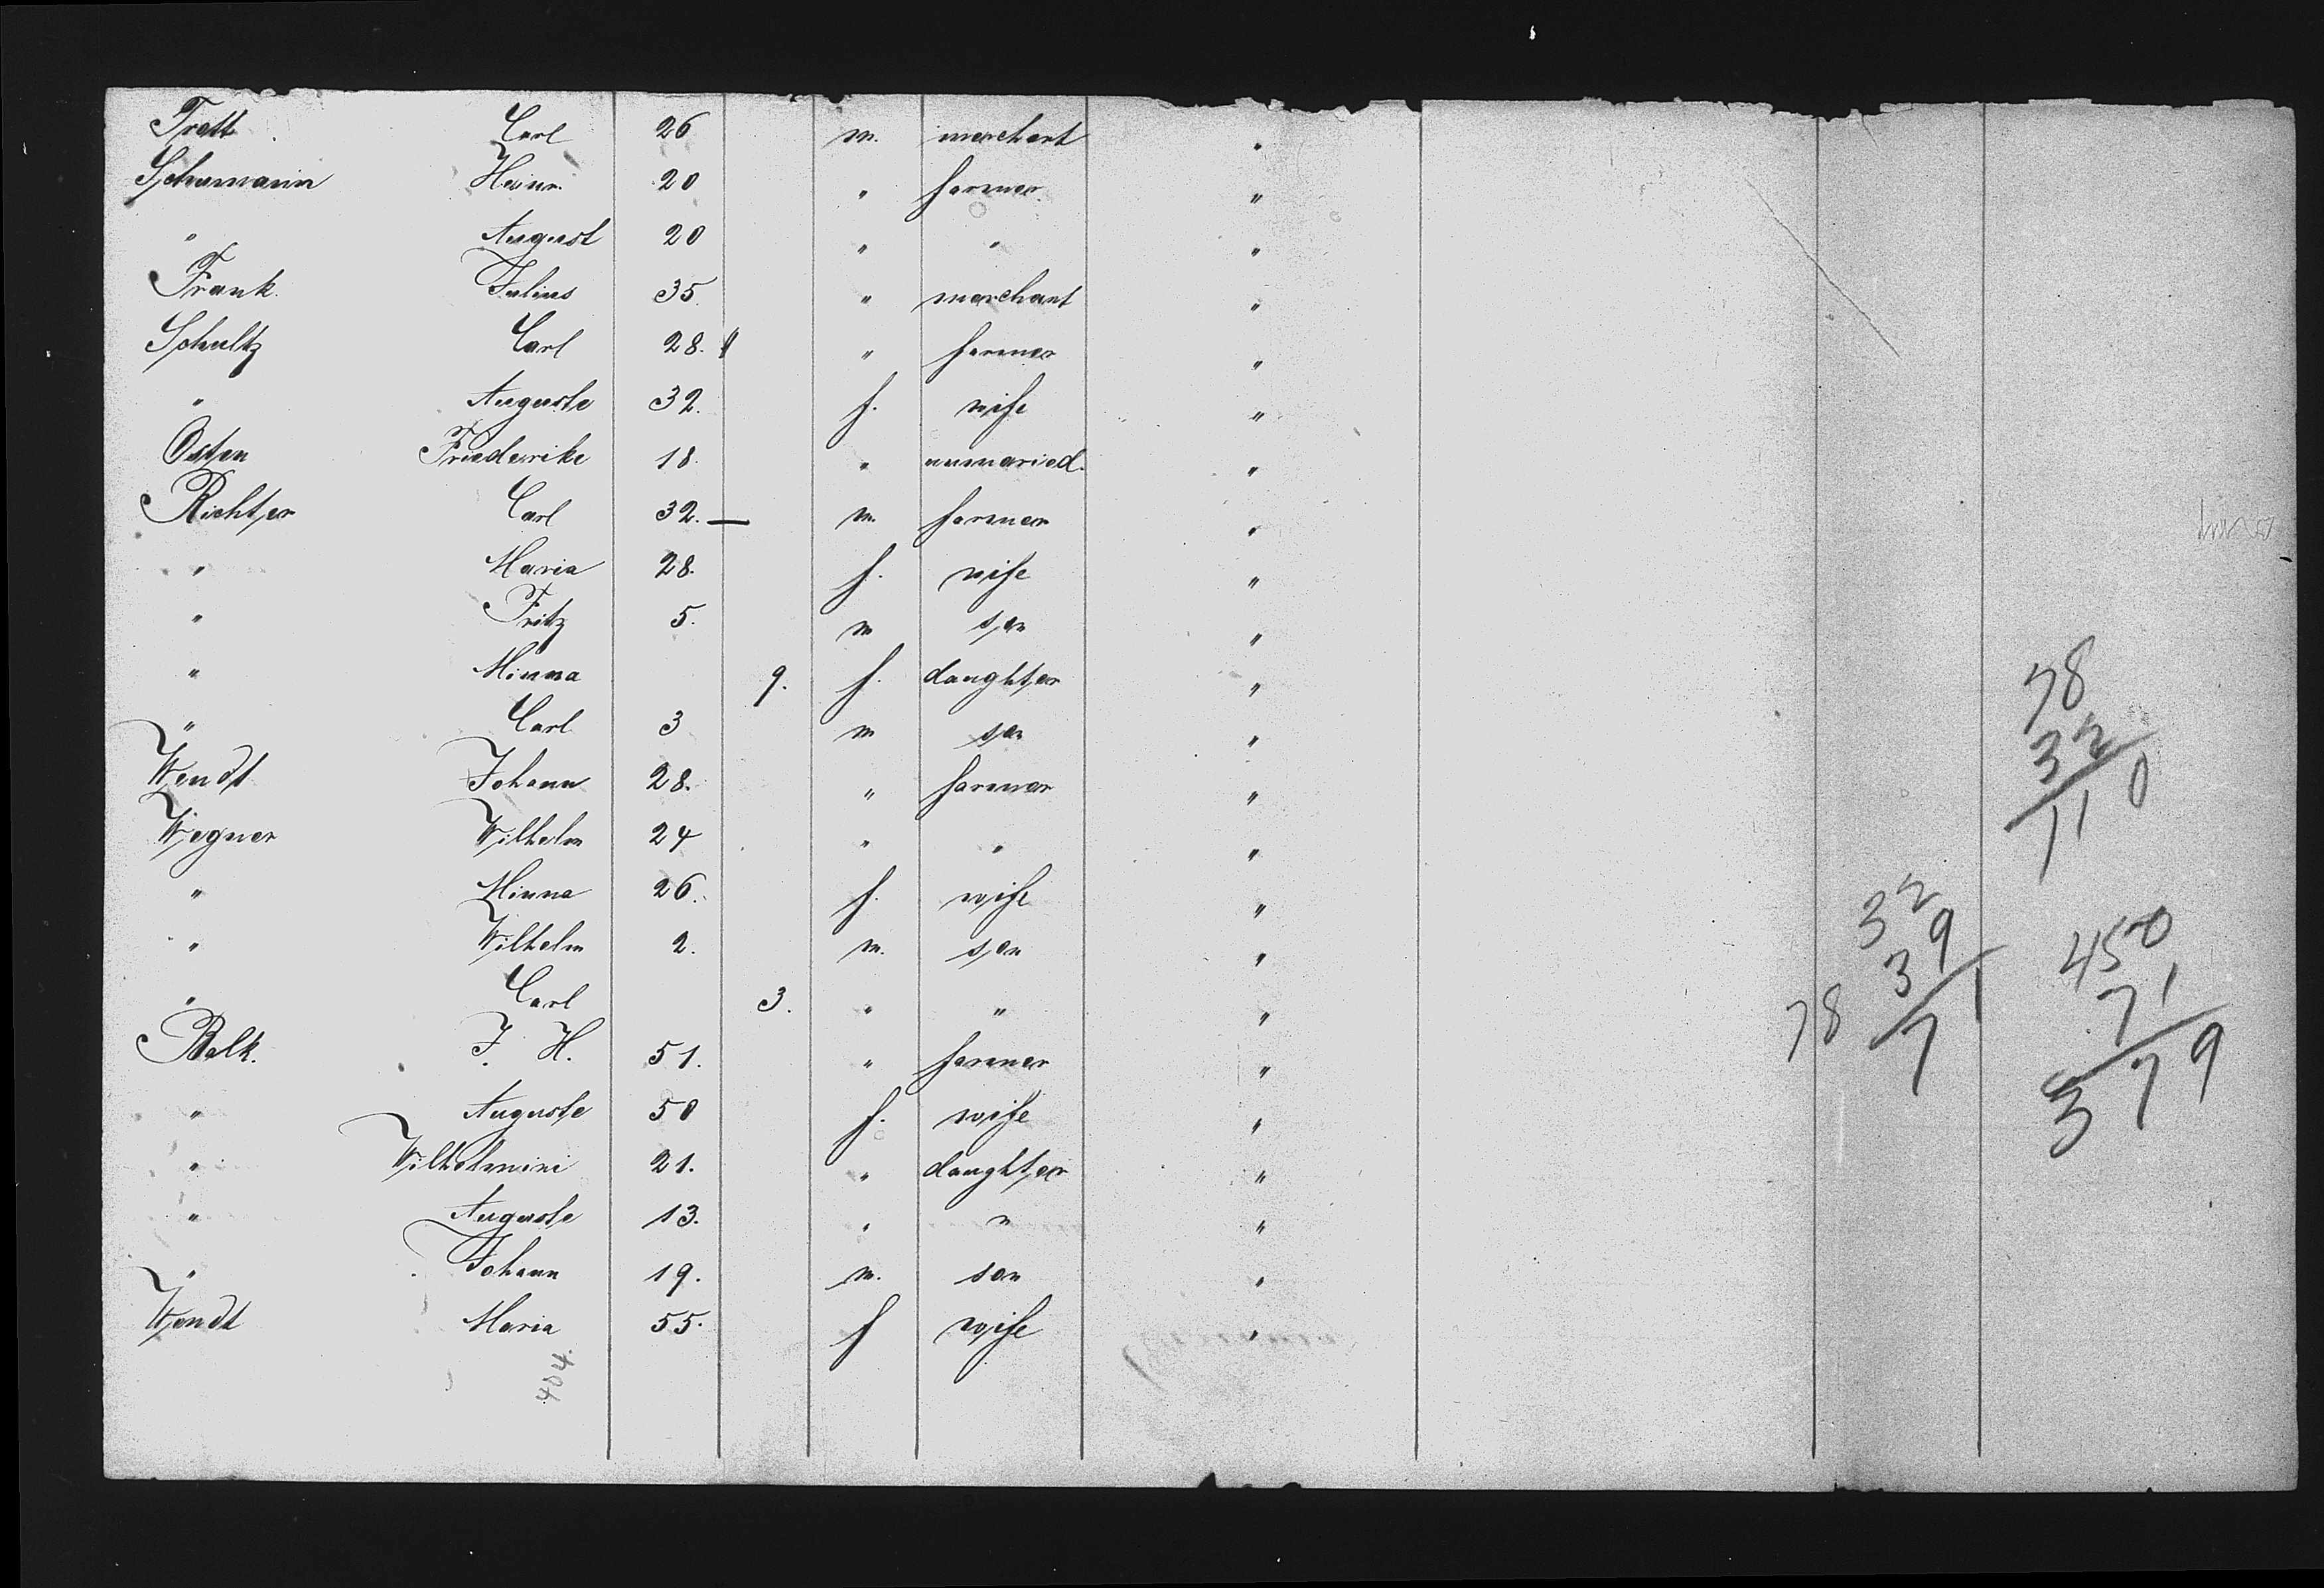 Tratt Carl 26 m. merchant "
Schumann Heinr. 20 " farmer "
" August 20 " " "
Frank. Julius 35. " merchant "
Schultz Carl 28. " farmer "
" Auguste 32. f. wife "
Osten Friederike 18. " unmaried. "
Richter Carl 32. — m. farmer "
" Maria 28. f. wife "
" Fritz 5. m son "
" Minna 9. f. daughter "
" Carl 3 m son "
Wendt Johann 28. " farmer "
Wegner Wilhelm 24 " " "
" Minna 26. f. wife "
" Wilhelm 2. m. son "
" Carl 3. " " "
Balk. J. H. 51. " farmer "
" Auguste 50 f. wife "
" Wilhelmine 21. " daughter "
" Auguste 13. " " "
" Johann 19. m. son "
Wendt Maria 55. f wife "
404.
78
32
110
32
39
78 71
450
71
379